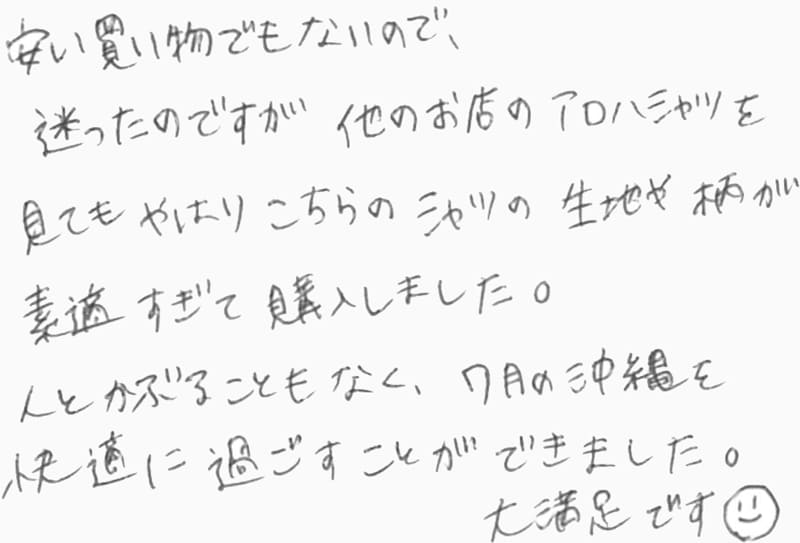 安い買い物でもないので、
迷ったのですが 他のお店のアロハシャツを
見ても やはり こちらの シャツの 生地や 柄が
素適すぎて 購入しました。
人とかぶることもなく、7月の沖縄を
快適に過ごすことができました。
大満足です☺